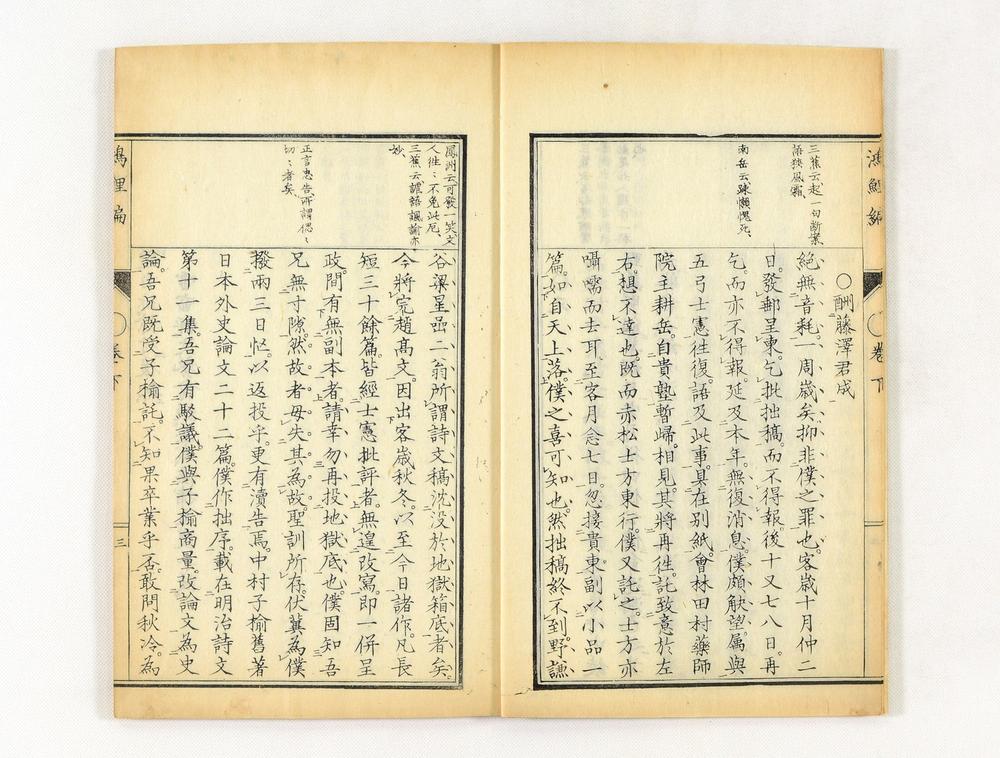 鴻鯉編
卷下
三蕉云、起一句斷案
南岳云、疎懶愧死、
○酬藤澤君成
絶無音耗。一周歳矣。抑非僕之罪也。客歳十月仲二
日。發郵呈柬。乞批拙稿。而不得報。後十又七八日。再
乞。而亦不得報。延及本年。無復消息。僕頗觖望。屬與
五弓士憲往復。語及此事。具在別紙。會林田村藥師
院主耕岳。自貴塾暫歸。相見。其將再往。託致意於左
右。想不達也。既而赤松士方東行。僕又託之。士方亦
囁嚅而去耳。至客月念七日。忽接貴柬。副以小品一
篇。如自天上落。僕之喜可知也。然拙稿終不到。野謙
鳳州云可發一笑文
人往〻不免此厄、
三蕉云、謔語諷諭亦
妙、
正言忠告所謂偲〻
切〻者矣、
谷梁星巖二翁所謂詩文稿沈没於地獄箱底者矣。
今將完趙高文。因出客歳秋冬。以至今日諸作。凡長
短三十餘篇。皆經士憲批評者。無遑改寫。即一併呈
政。間有無副本者。請幸勿再投地獄底也。僕固知吾
兄無寸隙。然故者毋失其為故。聖訓所存。伏冀為僕
撥兩三日忙。以返投乎。更有瀆告焉。中村子褕舊著
日本外史論文二十二篇。僕作拙序。載在明治詩文
第十一集。吾兄有駁議。僕與子褕商量。改論文為史
論。吾兄既受子褕託。不知果卒業乎否。敢問秋冷。為
鴻鯉編
卷下
三